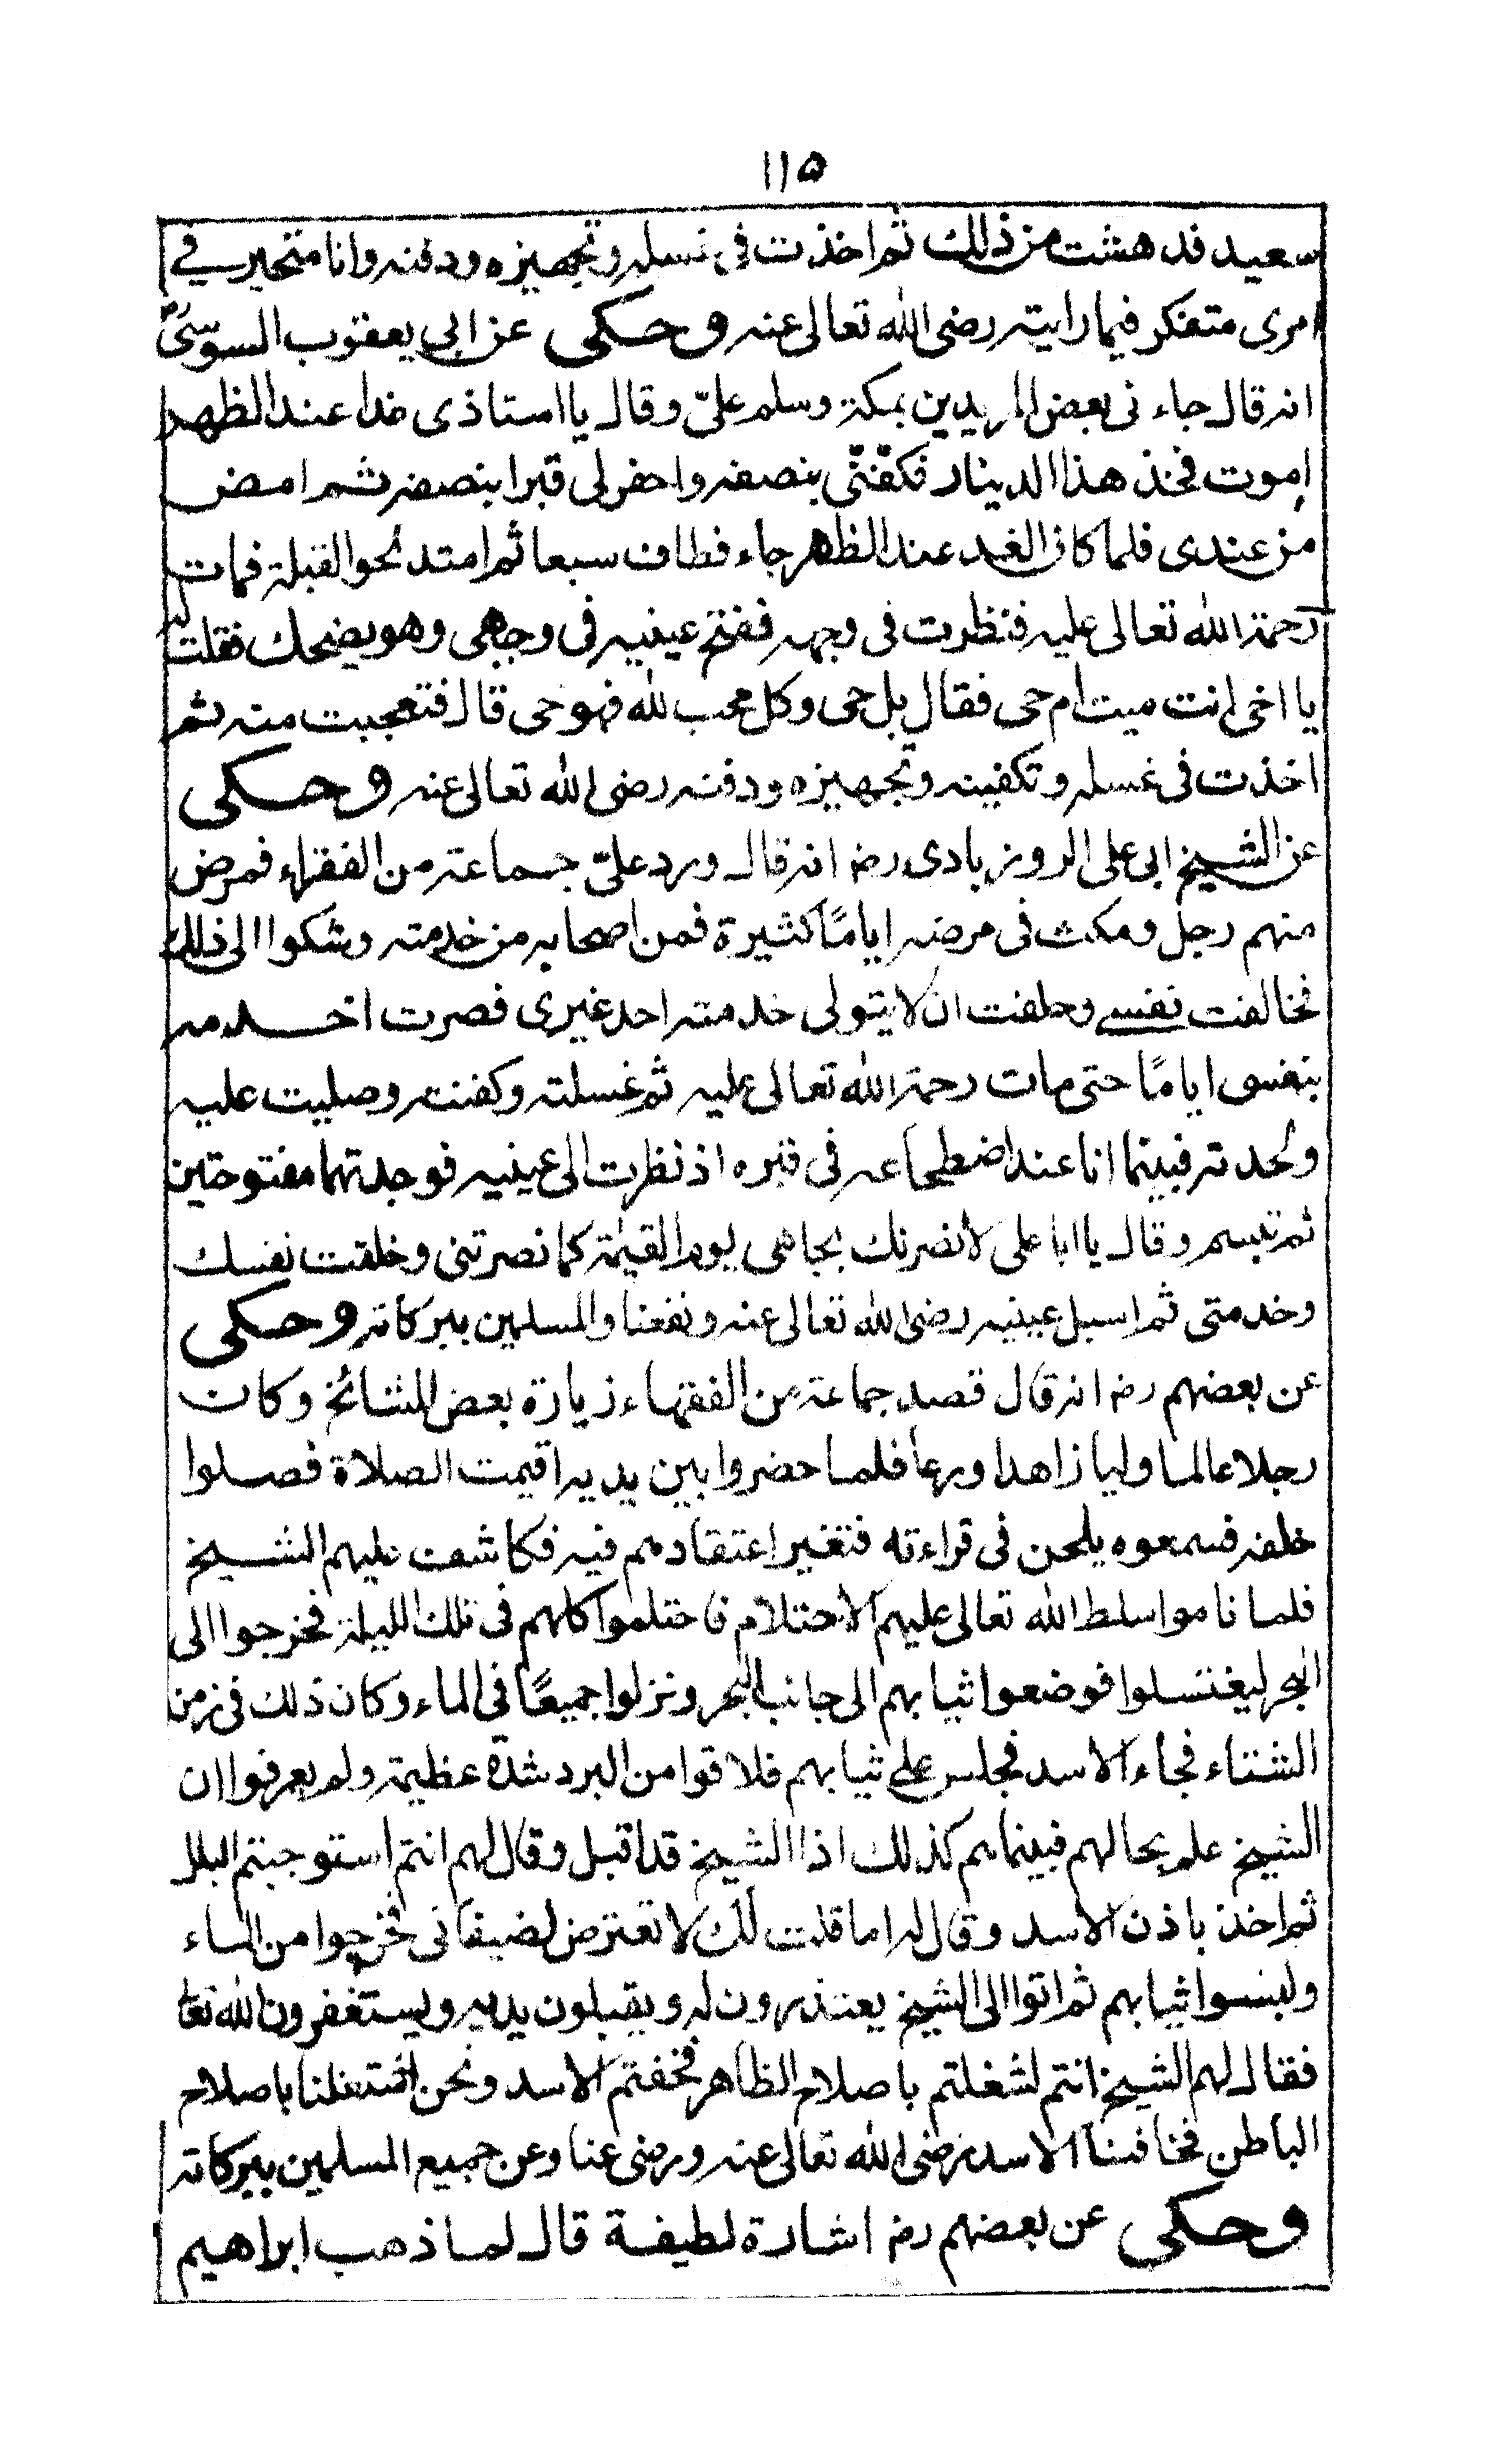 ١١٥
سعيد فدهشت من ذلك ثم اخذت في غسله وتجهيزه ودفنه وانا متحير في
امرى متفكر فيما رايته رضى الله تعالى عنه وحكى عن ابى يعقوب السوسىّ
انه قال جاءنى بعض المريدين بمكة وسلم علىّ وقال يا استاذى غدا عند الظهر
اموت فخذ هذا الدينار فكفّنّى بنصفه واحفر لى قبرا بنصفه ثم امض
من عندى فلما كان الغد عند الظهر جاء فطاف سبعا ثم امتد نحو القبلة فمات
رحمة الله تعالى عليه فنظرت فى وجهه ففتح عينيه فى وجهى وهو يضحك فقلت له
يا اخى انت ميت ام حى فقال بل حى وكل محب لله فهو حى قال فتعجبت منه ثم
اخذت فى غسله وتكفينه وتجهيزه ودفنه رضى الله تعالى عنه وحكى
عن الشيخ ابى على الروزبادى رضہ انه قال ورد علىّ جماعة من الفقراء فمرض
منهم رجل ومكث فى مرضه اياماً كثيرة فمن اصحابه من خدمته وشكوا الى ذلك
فخالفت نفسى وحلفت ان لا يتولى خدمته احد غيرى فصرت اخدمه
بنفسى اياماً حتى مات رحمة الله تعالى عليه ثم غسلته وكفنته وصليت عليه
ولحدته فبينما انا عند اضطجاعه فى قبره اذ نظرت الى عينيه فوجدتهما مفتوحتين
ثم تبسم وقال يا ابا على لانصرنك بجاهى يوم القيمة كما نصرتنى وخلقت نفسك
وخدمتى ثم اسبل عينيه رضى الله تعالى عنه ونفعنا والمسلمين ببركاته وحكى
عن بعضهم رضہ انه قال قصد جماعة من الفقهاء زيارة بعض المشائخ وكان
رجلا عالما وليا زاهدا ورعا فلما حضروا بين يديه اقيمت الصلاة فصلوا
خلفه فسمعوه يلحن فى قراءته فتغير اعتقادهم فيه فكاشف عليهم الشيخ
فلما ناموا سلط الله تعالى عليهم الاحتلام فاحتلموا كلهم فى تلك الليلة فخرجوا الى
البحر ليغتسلوا فوضعوا ثيابهم الى جانب البحر ونزلوا جميعاً فى الماء وكان ذلك فى زمن
الشتاء فجاء الاسد فجلس على ثيابهم فلاقوا من البرد شدة عظيمة ولم يعرفوا ان
الشيخ علم بحالهم فبينما هم كذلك اذا الشيخ قد اقبل وقال لهم انتم استوجبتم البلل
ثم اخذ باذن الاسد وقال له اما قلت لك لا تعترض لضيفانى فخرجوا من الماء
ولبسوا ثيابهم ثم اتوا الى الشيخ يعتذرون له ويقبلون يديه ويستغفرون الله تعا
فقال لهم الشيخ انتم لشغلتم باصلاح الظاهر فخفتم الاسد ونحن اشتغلنا باصلاح
الباطن فخافنا الاسد رضى الله تعالى عنه ورضى عنا وعن جميع المسلمين ببركاته
وحكى عن بعضهم رضہ اشارة لطيفة قال لما ذهب ابراهيم